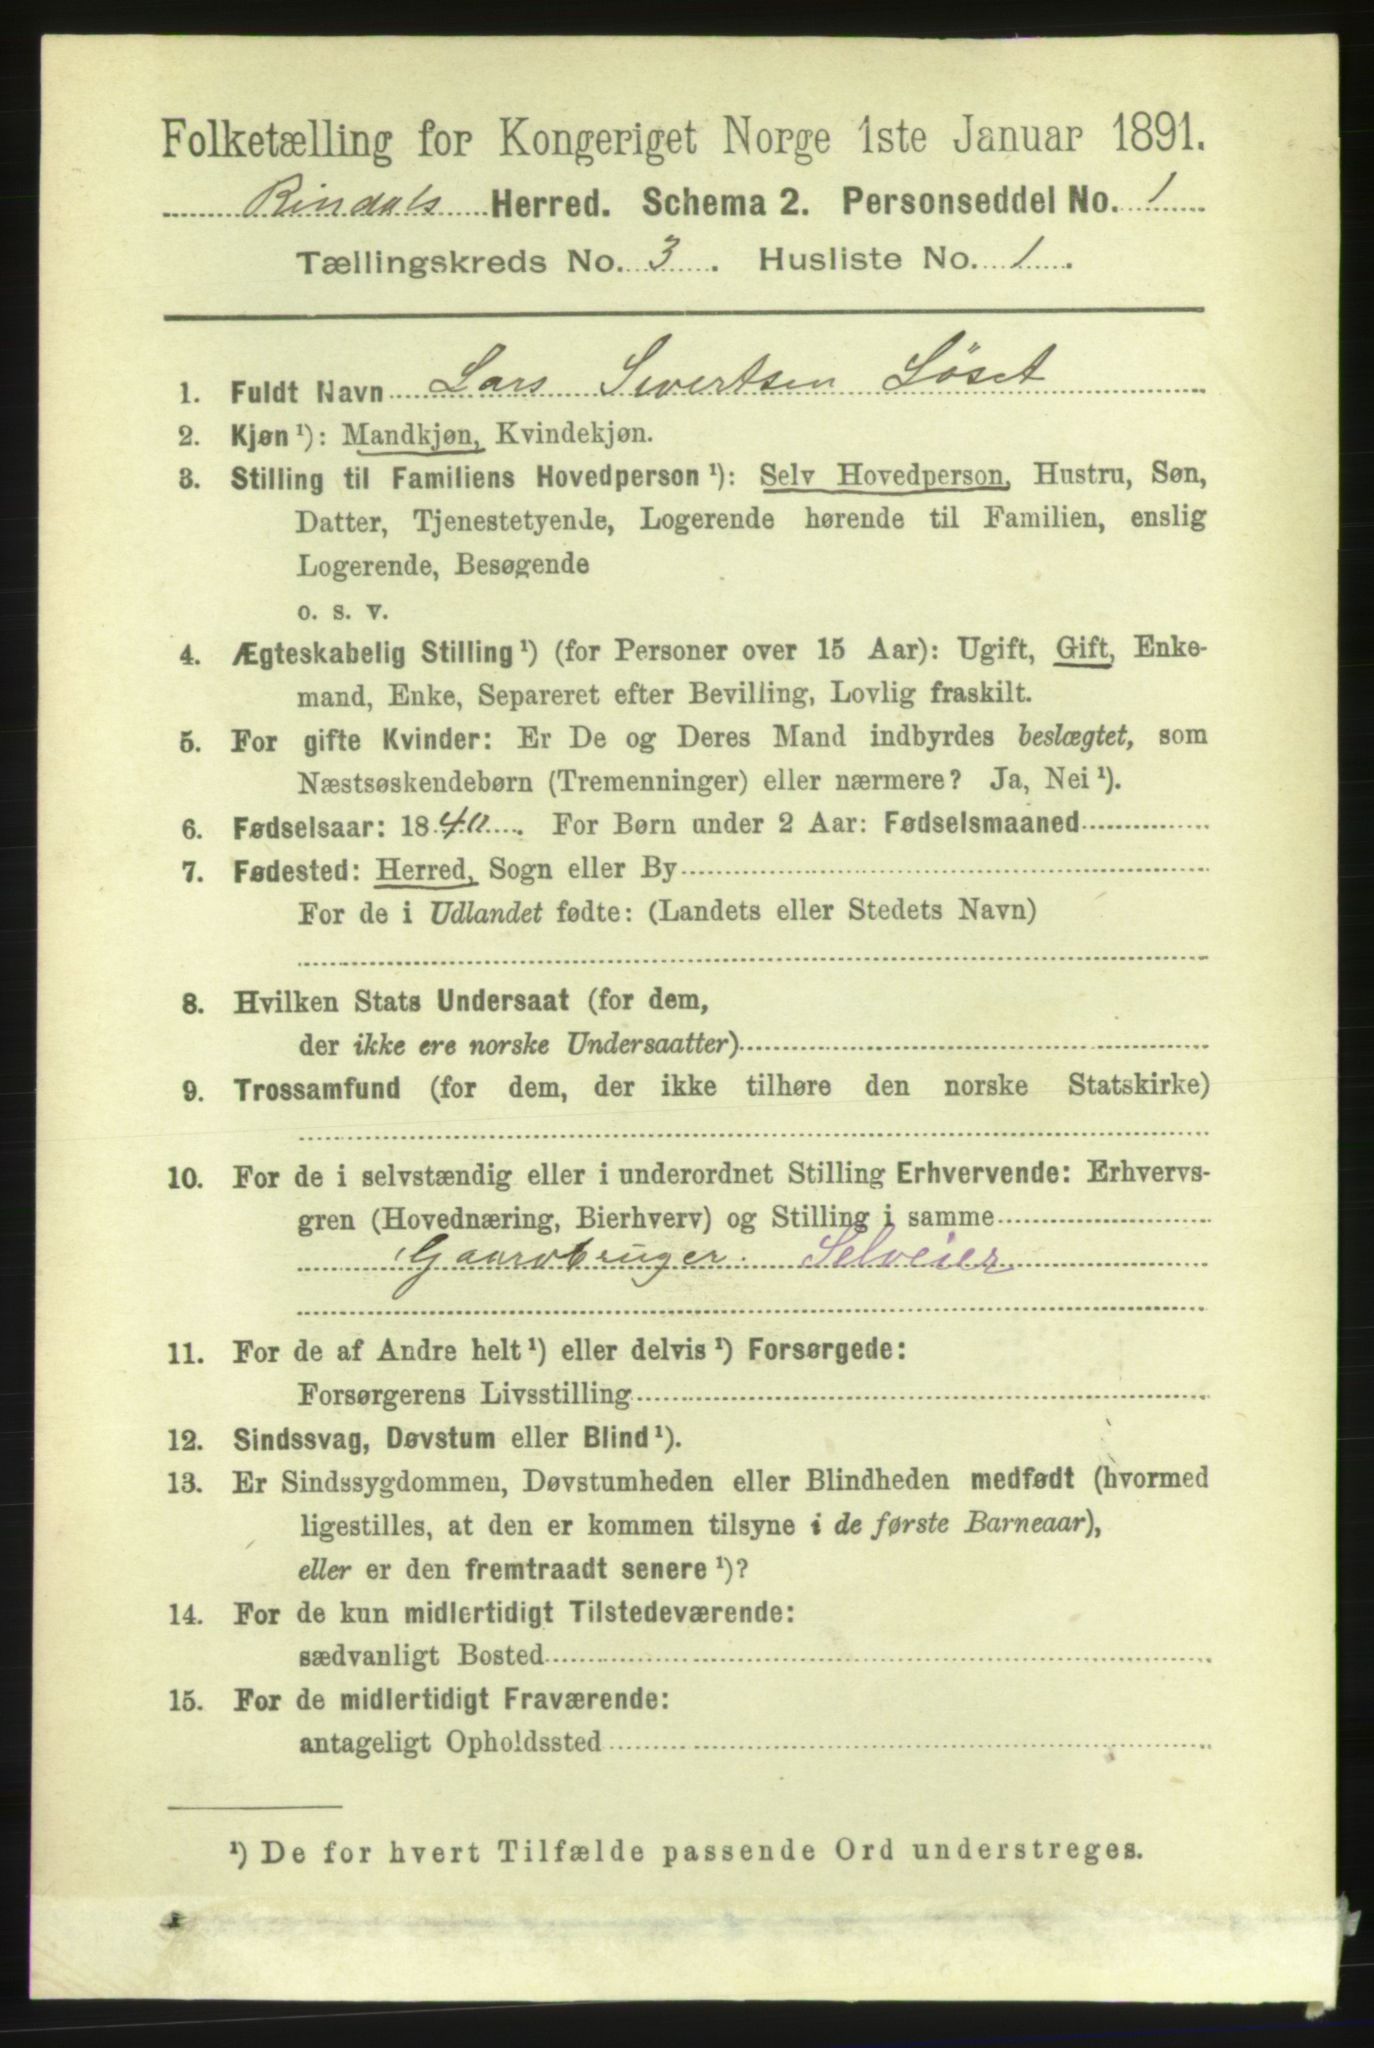 Folketælling for Kongeriget Norge 1ste Januar 1891.
Rindals Herred. Schema 2. Personseddel No. 1
Tællingskreds No. 3. Husliste No. 1.
1. Fuldt Navn Lars Sivertsen Löset
2. Kjøn ¹): Mandkjøn, Kvindekjøn.
3. Stilling til Familiens Hovedperson ¹): Selv Hovedperson, Hustru, Søn,
Datter, Tjenestetyende, Logerende hørende til Familien, enslig
Logerende, Besøgende
o. s. v.
4. Ægteskabelig Stilling ¹) (for Personer over 15 Aar): Ugift, Gift, Enke-
mand, Enke, Separeret efter Bevilling, Lovlig fraskilt.
5. For gifte Kvinder: Er De og Deres Mand indbyrdes beslægtet, som
Næstsøskendebørn (Tremenninger) eller nærmere? Ja, Nei ¹).
6. Fødselsaar: 1840. For Børn under 2 Aar: Fødselsmaaned
7. Fødested: Herred, Sogn eller By
For de i Udlandet fødte: (Landets eller Stedets Navn)
8. Hvilken Stats Undersaat (for dem,
der ikke ere norske Undersaatter)
9. Trossamfund (for dem, der ikke tilhøre den norske Statskirke)
10. For de i selvstændig eller i underordnet Stilling Erhvervende: Erhvervs-
gren (Hovednæring, Bierhverv) og Stilling i samme
Gaardbruger. Selveier
11. For de af Andre helt ¹) eller delvis ¹) Forsørgede:
Forsørgerens Livsstilling
12. Sindssvag, Døvstum eller Blind ¹).
13. Er Sindssygdommen, Døvstumheden eller Blindheden medfødt (hvormed
ligestilles, at den er kommen tilsyne i de første Barneaar),
eller er den fremtraadt senere ¹)?
14. For de kun midlertidigt Tilstedeværende:
sædvanligt Bosted
15. For de midlertidigt Fraværende:
antageligt Opholdssted
¹) De for hvert Tilfælde passende Ord understreges.